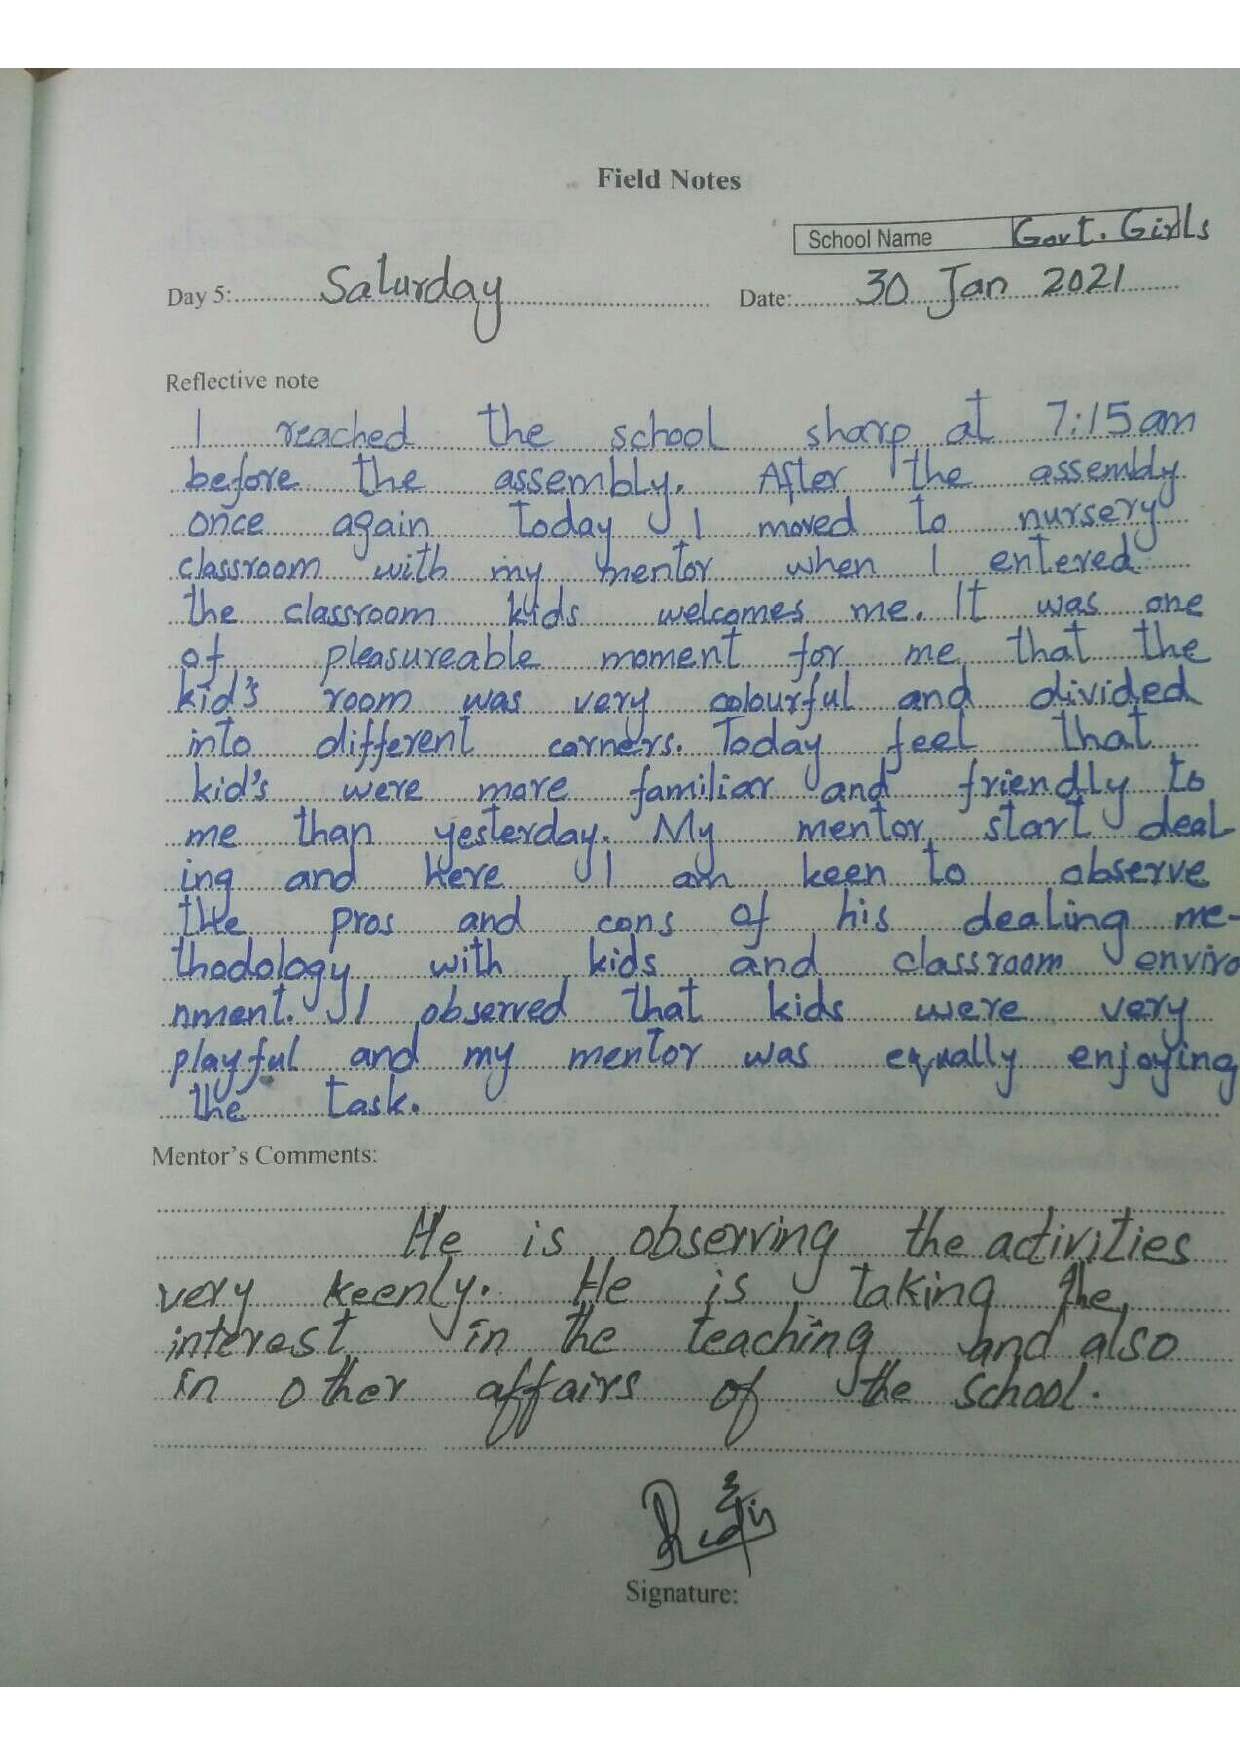 Field Notes
School Name Govt. Girls
Day 5: Saturday Date: 30 Jan 2021
Reflective note
I reached the school sharp at 7:15 am
before the assembly. After the assembly
once again today I moved to nursery
classroom with my mentor when I entered
the classroom kids welcomes me. It was one
of pleasureable moment for me that the
kid's room was very colourful and divided
into different corners. Today feel that
kid's were more familiar and friendly to
me than yesterday. My mentor start deal
ing and here I am keen to observe
the pros and cons of his dealing me-
thodology with kids and classroom enviro
nment. I observed that kids were very
playful and my mentor was equally enjoying
the task.
Mentor's Comments:
He is observing the activities
very keenly. He is taking the
interest in the teaching and also
in other affairs of the school.
Signature: